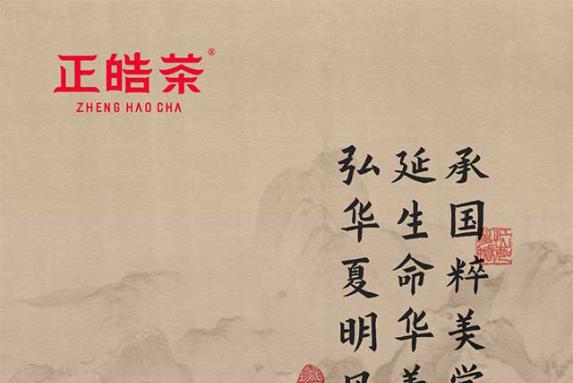 正皓茶®
ZHENG HAO CHA
承国粹美学
延生命华
弘华夏明